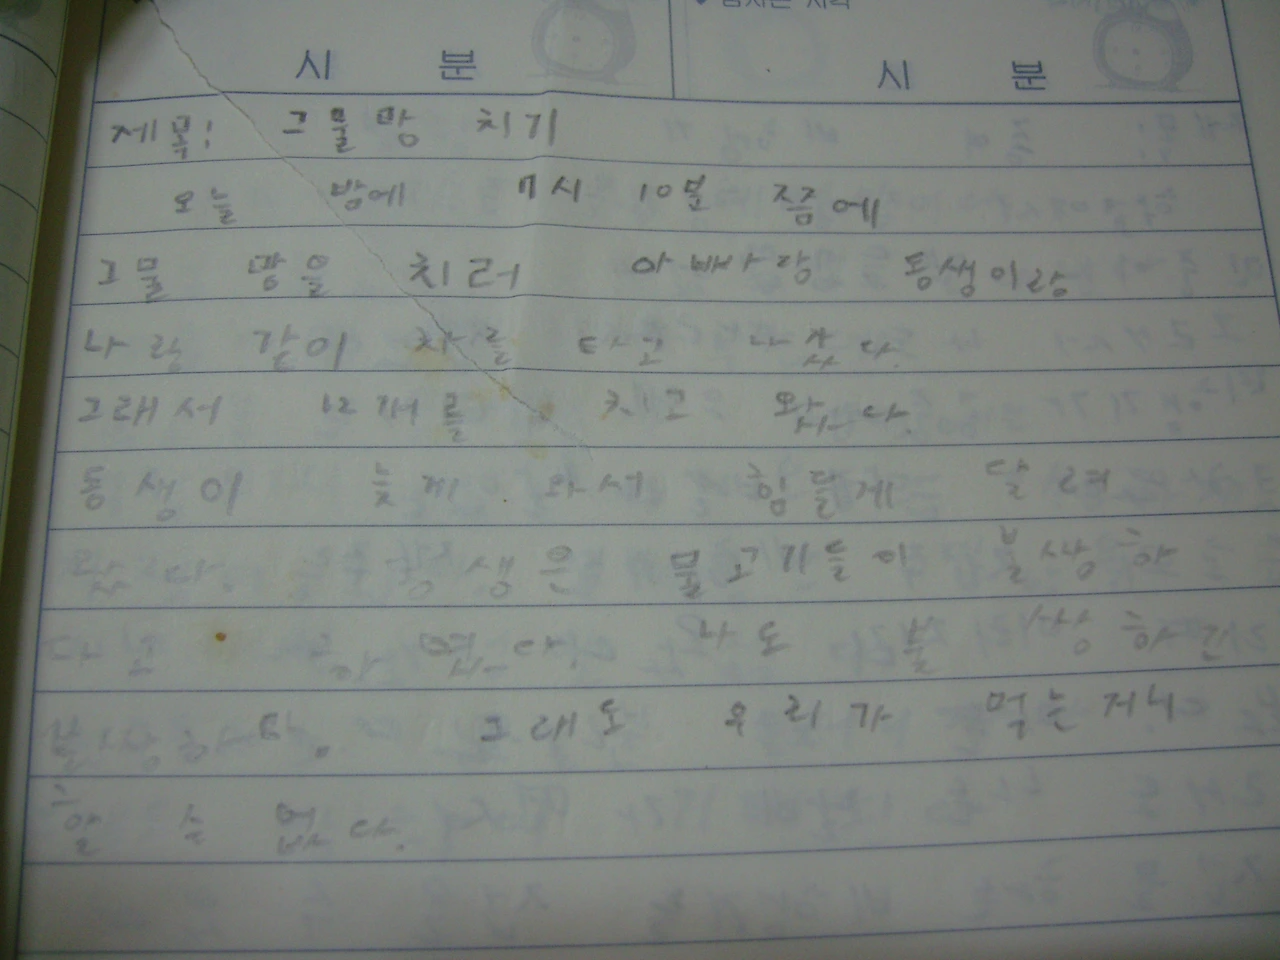 잠자는 시각
시 분 시 분
제목: 그물망 치기
오늘 밤에 7시 10분 쯤에
그물 망을 치러 아빠랑 동생이랑
나랑 같이 차를 타고 나갔다.
그래서 12개를 치고 왔다.
동생이 늦게 와서 힘들게 달려
왔다. 동생은 물고기들이 불상하
다고 했다. 나도 불상하긴
불상하다. 그래도 우리가 먹는거니
할 수 없다.